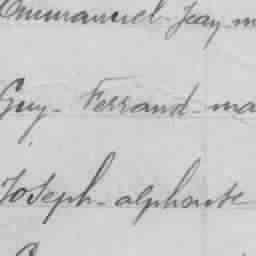 Emmanuel Jean m
Guy - Ferrand - ma
Joseph - alphonse